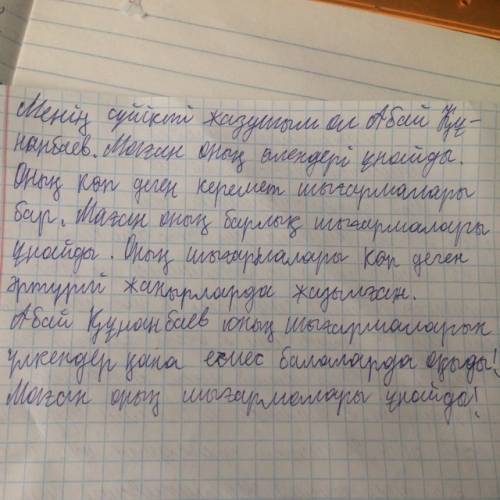 Менің сүйікті жазушым ол Абай Құ-
нанбаев. Мағ‌ан оның өлендері ұнайды.
Оның көп деген керемет шығармалары
бар. Маған оның барлық шығармалары
ұнайды. Оның шығармалары көп деген
әртүрлі жанырларда жазылған.
Абай Құнанбаев оның шығармаларын
үлкендер қана емес балаларда оқыды!
Маған оның шығармалары ұнайды!